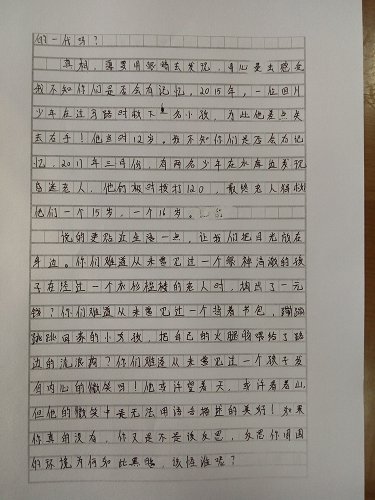 的一代吗？
真相，需要用眼睛去发现，用心灵去感受
我不知你们是否会有记忆，2015年，一位四川
少年在过马路时救下一名小孩，为此他差点失
去右手！他当时12岁。我不知你们是否会为记
忆，2017年三月份，有两名少年在水库边发现
自逃老人，他们及时拨打120，最终老人得救
他们一个15岁，一个16岁。
说的更贴近生活一点，让我们把目光放在
身边。你们难道从未曾见过一个眼神清澈的孩
子在经过一个衣衫褴褛的老人时，掏出了一元
钱？你们难道从未曾见过一个背着书包，蹦蹦
跳跳回家的小女孩，把自己的火腿肠喂给了路
边的流浪狗？你们难道从未曾见过一个孩子发
自内心的微笑吗！他或许望着天，或许看着山
但他的微笑中是无法用语言描述的美好！如果
你真的没有，你又是不是该反思，反思你周围
的环境为何如此黑暗，该怪谁呢？